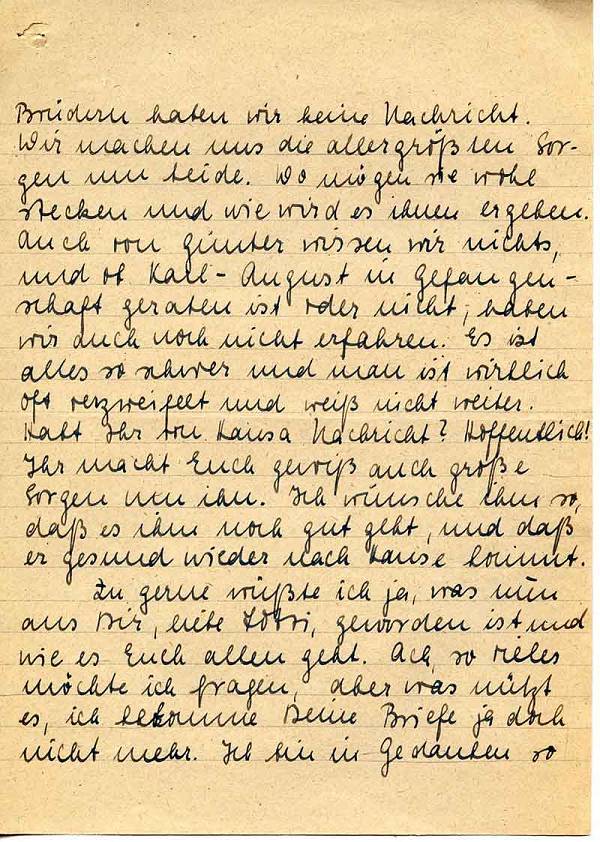 Brüdern haben wir keine Nachricht.
Wir machen uns die allergrößten Sor-
gen um beide. Wo mögen sie wohl
stecken und wie wird es ihnen ergehen.
Auch von Günter wissen wir nichts,
und ob Karl-August in Gefangen-
schaft geraten ist oder nicht, haben
wir auch noch nicht erfahren. Es ist
alles so schwer und man ist wirklich
oft verzweifelt und weiß nicht weiter.
Habt Ihr von Hansa Nachricht? Hoffentlich!
Ihr macht Euch gewiß auch große
Sorgen um ihn. Ich wünsche ihm so,
daß es ihm noch gut geht, und daß
er gesund wieder nach Hause kommt.
Zu gerne wüßte ich ja, was nun
aus Dir, liebe geworden ist und
wie es Euch allen geht. Ach, so vieles
möchte ich fragen, aber was nützt
es, ich bekomme Deine Briefe ja doch
nicht mehr. Ich bin in Gedanken so